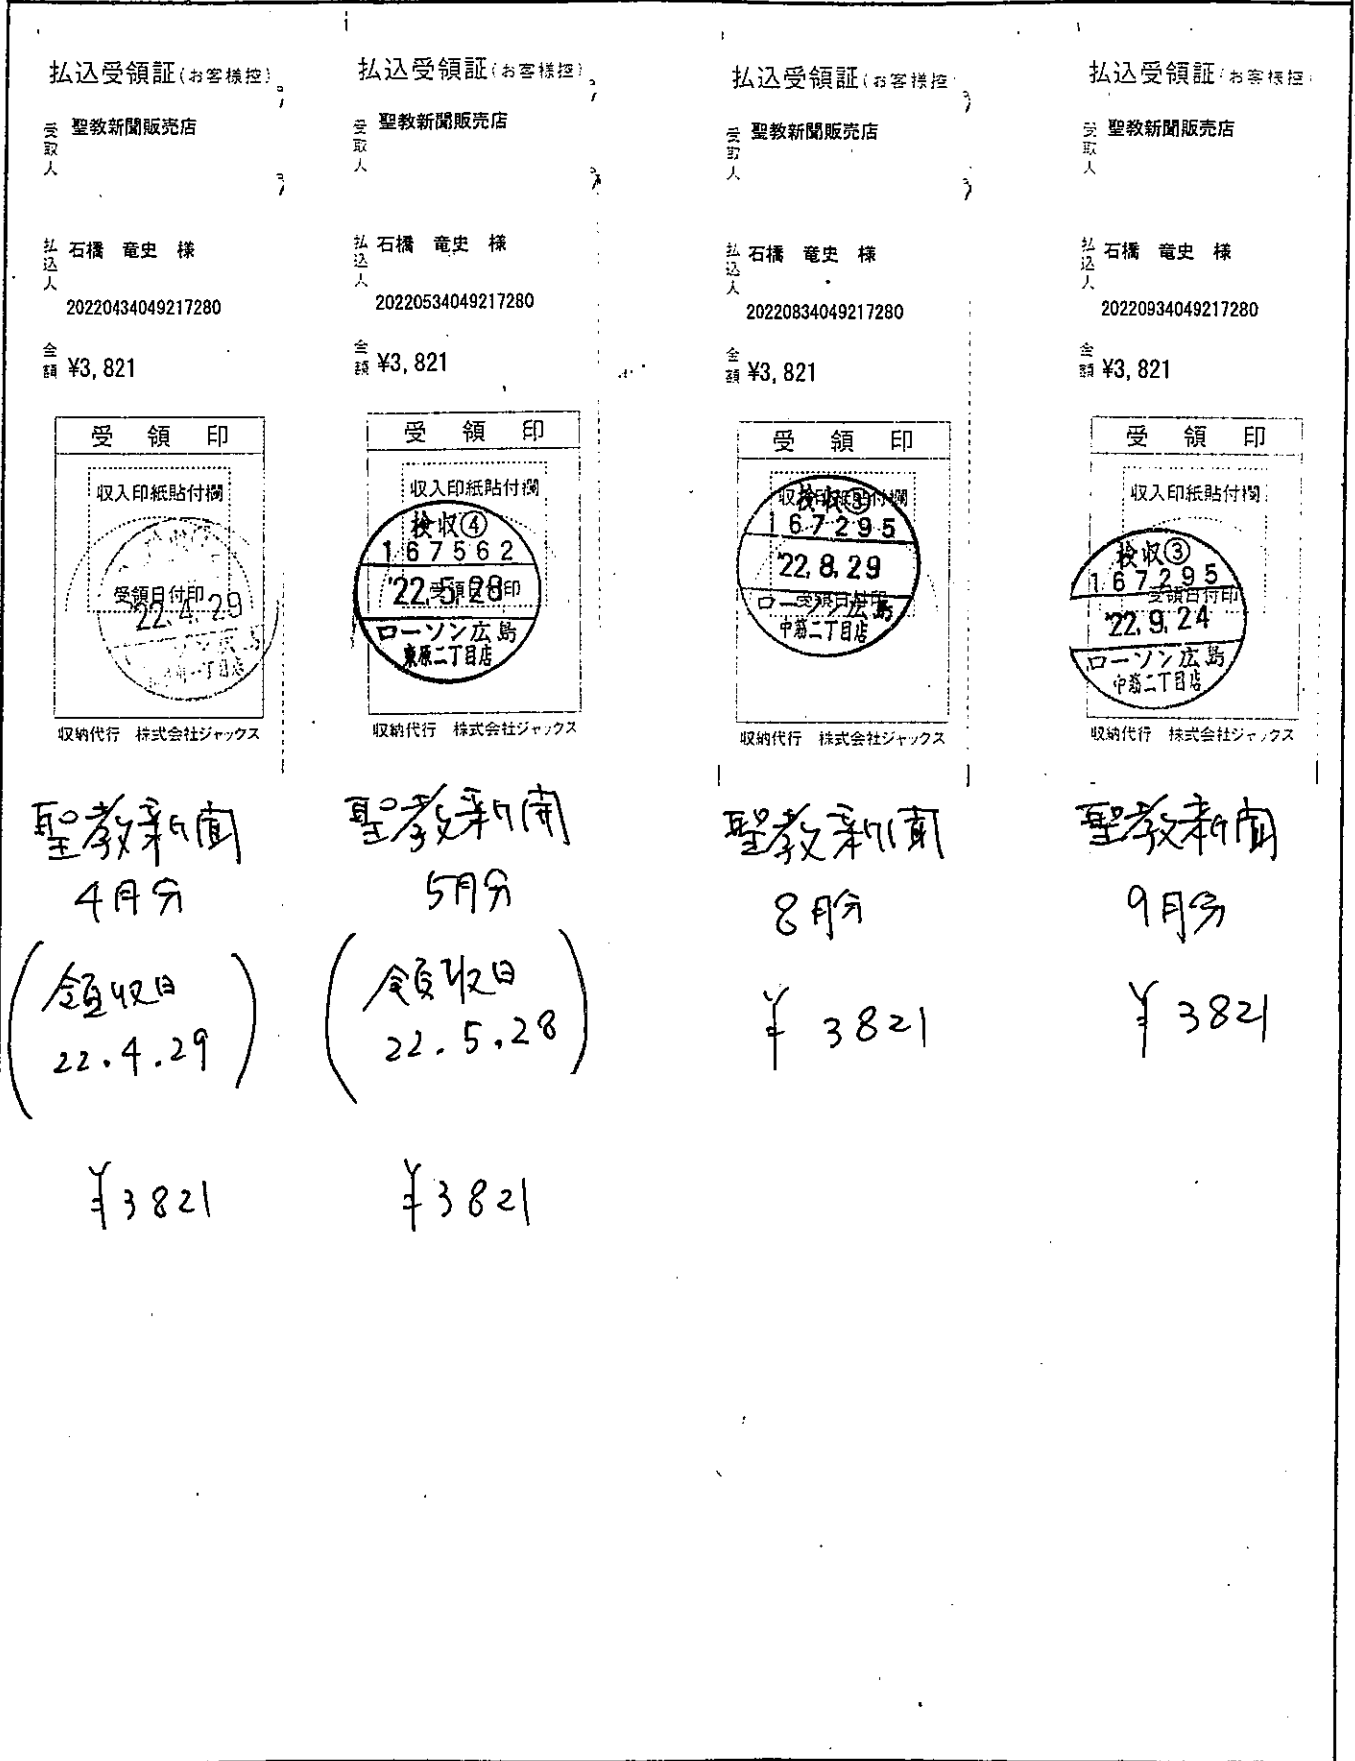 払込受領証(お客様控)
受取人 聖教新聞販売店
払込人 石橋 竜史 様
20220434049217280
金額 ¥3,821
受領印
収入印紙貼付欄
受領日付印
22.4.29
収納代行 株式会社ジャックス
聖教新聞
4月分
(領収日
22.4.29)
¥3821
払込受領証(お客様控)
受取人 聖教新聞販売店
払込人 石橋 竜史 様
20220534049217280
金額 ¥3,821
受領印
収入印紙貼付欄
検収④
167562
'22.5.28
受領日付印
ローソン広島
東原二丁目店
収納代行 株式会社ジャックス
聖教新聞
5月分
(領収日
22.5.28)
¥3821
払込受領証(お客様控
受取人 聖教新聞販売店
払込人 石橋 竜史 様
20220834049217280
金額 ¥3,821
受領印
収入印紙貼付欄
検収③
167295
'22.8.29
受領日付印
ローソン広島
中筋二丁目店
収納代行 株式会社ジャックス
聖教新聞
8月分
¥3821
払込受領証(お客様控)
受取人 聖教新聞販売店
払込人 石橋 竜史 様
20220934049217280
金額 ¥3,821
受領印
収入印紙貼付欄
検収③
167295
受領日付印
'22.9.24
ローソン広島
中筋二丁目店
収納代行 株式会社ジャックス
聖教新聞
9月分
¥3821